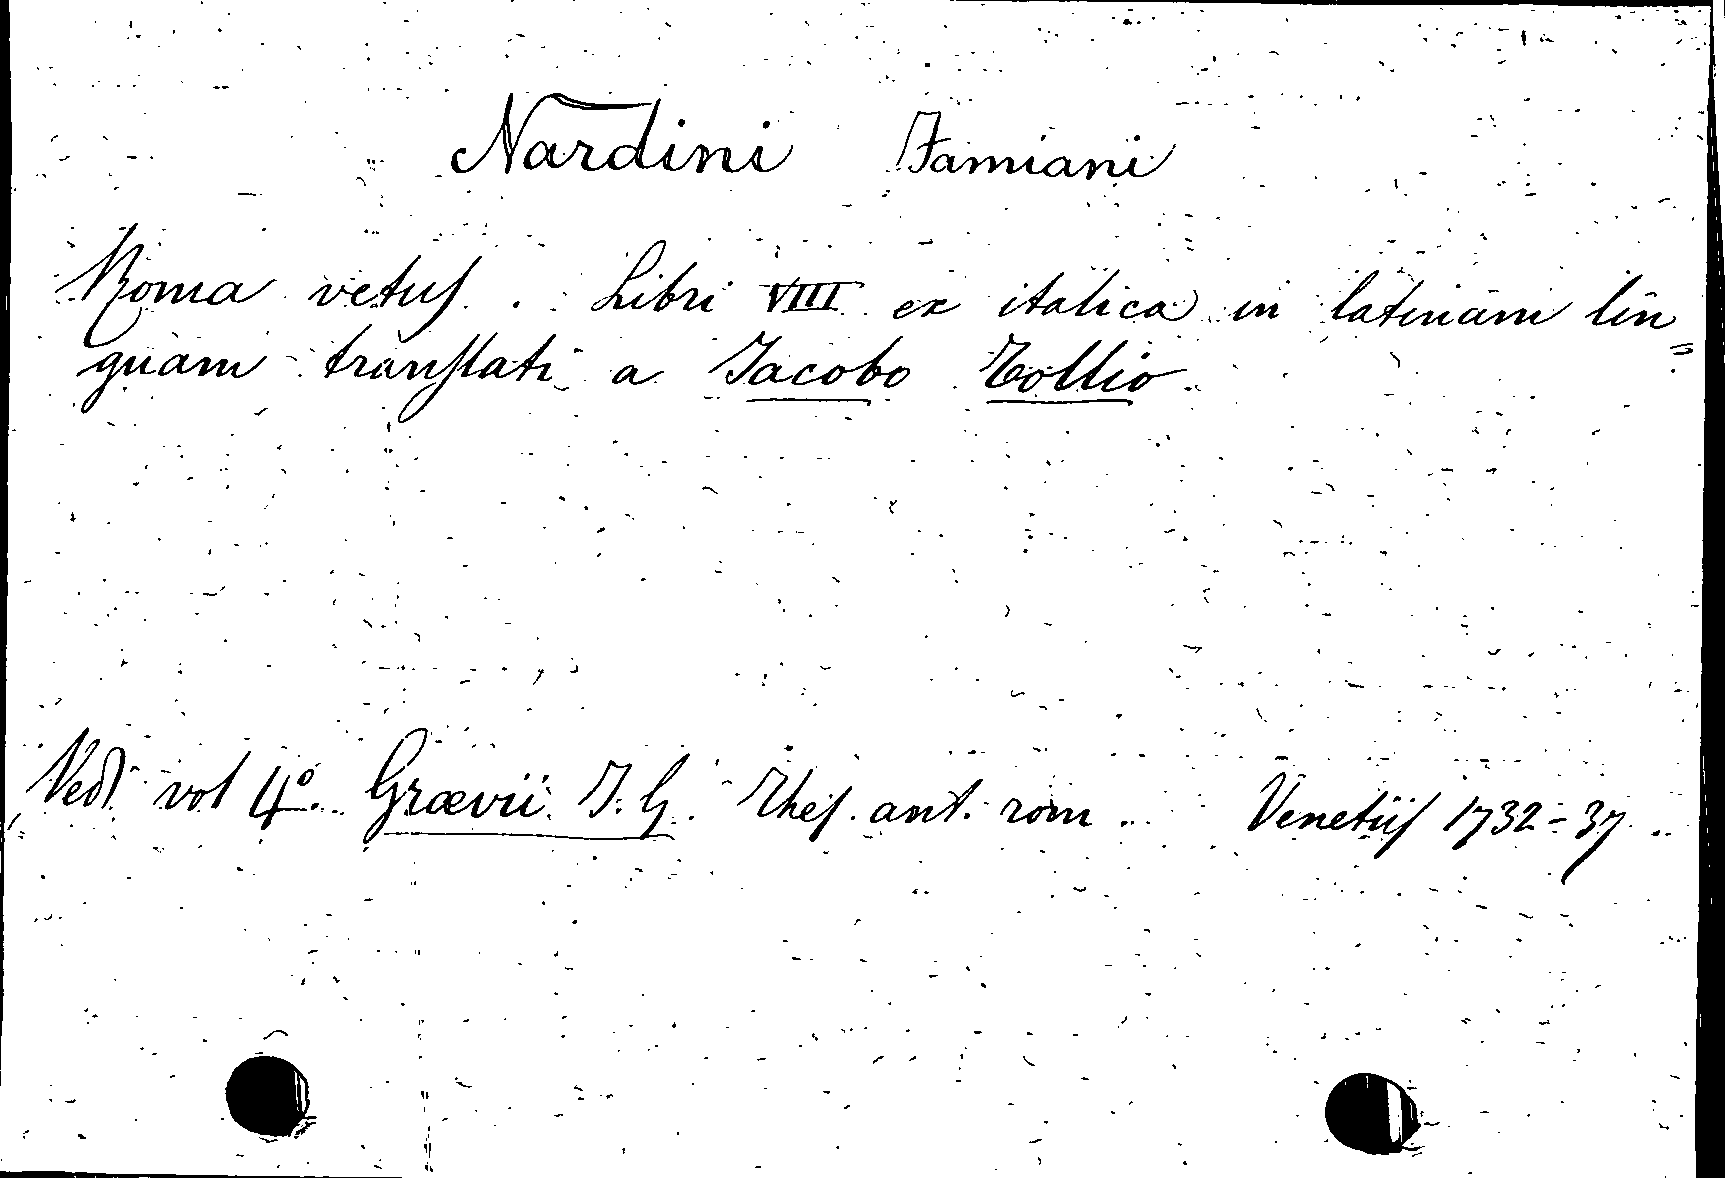 Nardini Famiani
Roma vetus. Libri VIII ex italica in latinam lin=
guam translati a Jacobo Tollio.
Vedi vol 4°. Grævii J. G. Thes. ant. rom. Venetiis 1732=37.